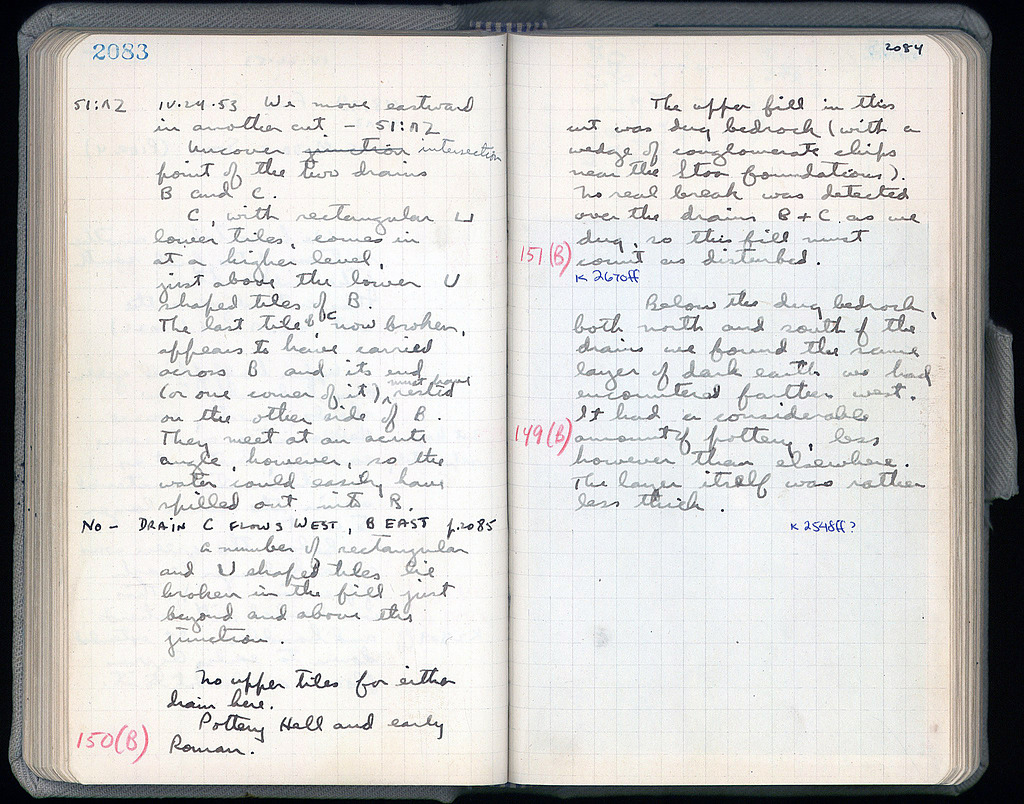 2083
51:ΛΖ IV.24.53 We move eastward
in another cut – 51:ΛΖ
Uncover junction intersection
point of the two drains
B and C.
C, with rectangular ⊔
lower tiles, comes in
at a higher level,
just above the lower U
shaped tiles of B.
The last tile of C now broken,
appears to have carried
across B and its end
(or one corner of it) must have rested
on the other side of B.
They meet at an acute
angle, however, so the
water could easily have
spilled out into B.
No – DRAIN C FLOWS WEST, B EAST p.2085
A number of rectangular
and U shaped tiles lie
broken in the fill just
beyond and above the
junction.
No upper tiles for either
drain here.
Pottery Hell and early
150(B) Roman.
2084
The upper fill in this
cut was dug bedrock (with a
wedge of conglomerate chips
near the Stoa foundations).
No real break was detected
over the drains B + C as we
dug, so this fill must
151(B) count as disturbed.
K 2670ff
Below the dug bedrock,
both north and south of the
drains we found the same
layer of dark earth we had
encountered farther west.
It had a considerable
149(B) amount of pottery, less
however than elsewhere.
The layer itself was rather
less thick.
K 2548ff?